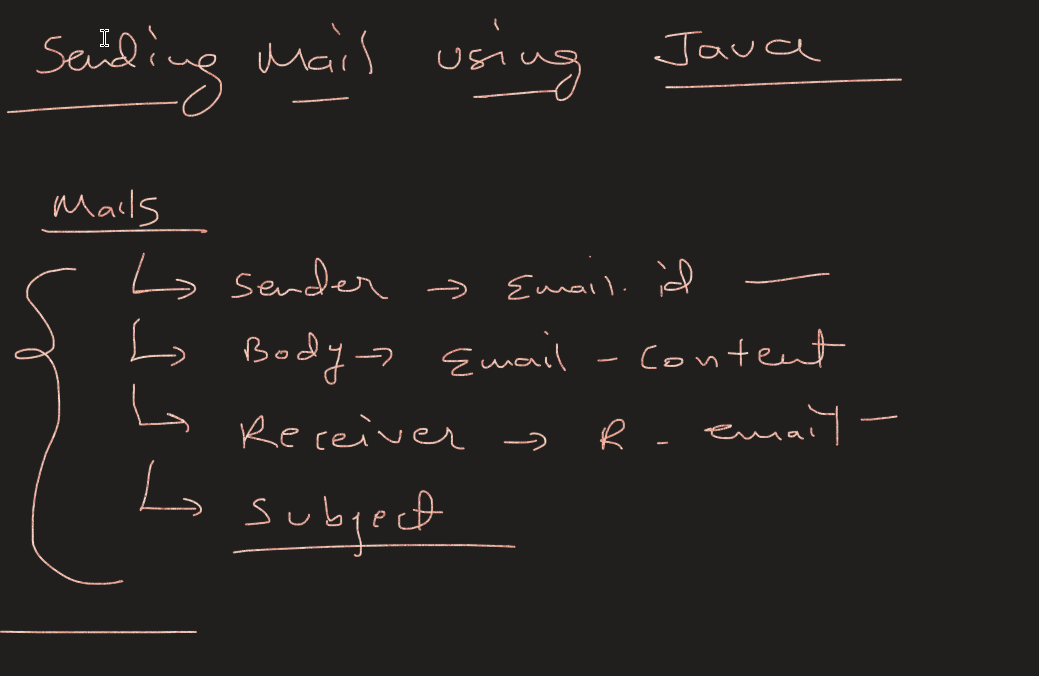 Sending Mail using Java
Mails
↳ Sender → Email id —
↳ Body → Email - Content
↳ Receiver → R - email —
↳ Subject